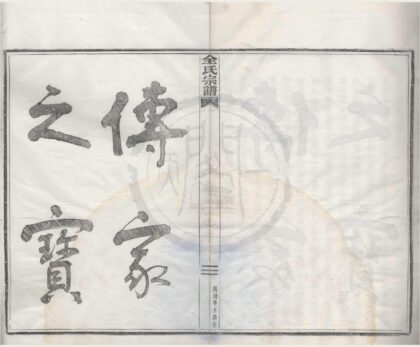 傳家
之寶
全氏宗譜